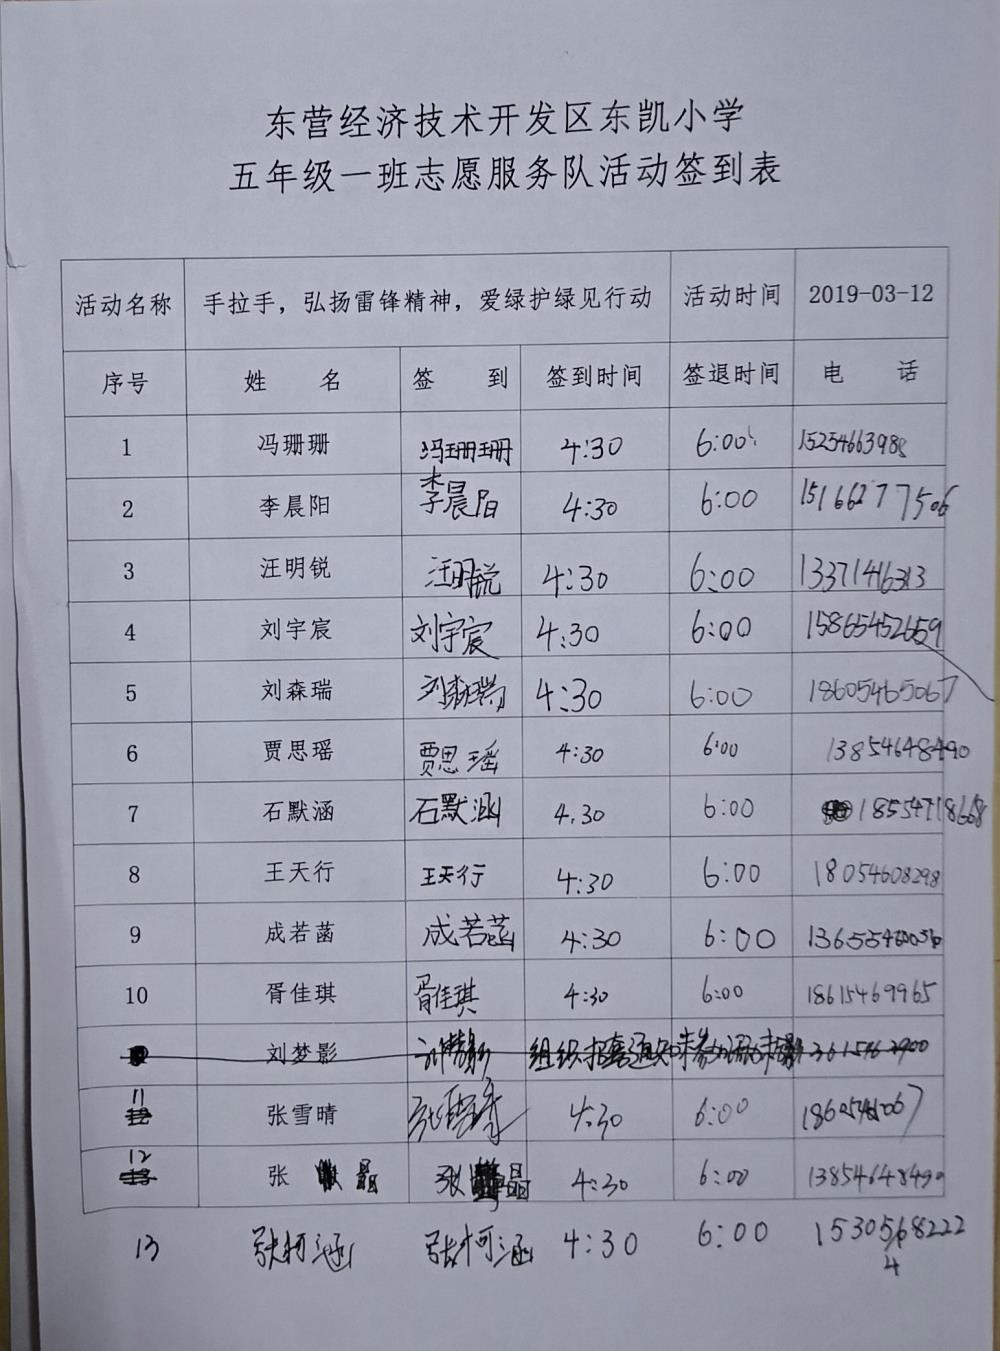 东营经济技术开发区东凯小学
五年级一班志愿服务队活动签到表
活动名称 手拉手，弘扬雷锋精神，爱绿护绿见行动 活动时间 2019-03-12
序号 姓 名 签 到 签到时间 签退时间 电 话
1 冯珊珊 冯珊珊 4:30 6:00 15254663988
2 李晨阳 李晨阳 4:30 6:00 15166277506
3 汪明锐 汪明锐 4:30 6:00 13371416313
4 刘宇宸 刘宇宸 4:30 6:00 15865452659
5 刘森瑞 刘森瑞 4:30 6:00 18605465067
6 贾思瑶 贾思瑶 4:30 6:00 13854648490
7 石默涵 石默涵 4:30 6:00 18554718668
8 王天行 王天行 4:30 6:00 18054608298
9 成若菡 成若菡 4:30 6:00
10 胥佳琪 胥佳琪 4:30 6:00 18615469965
刘梦影 刘梦影 组织 13615462900
11 张雪晴 张雪晴 4:30 6:00
12 张 晶 张 晶 4:30 6:00 13854648490
13 张柯涵 张柯涵 4:30 6:00 1530568222
4